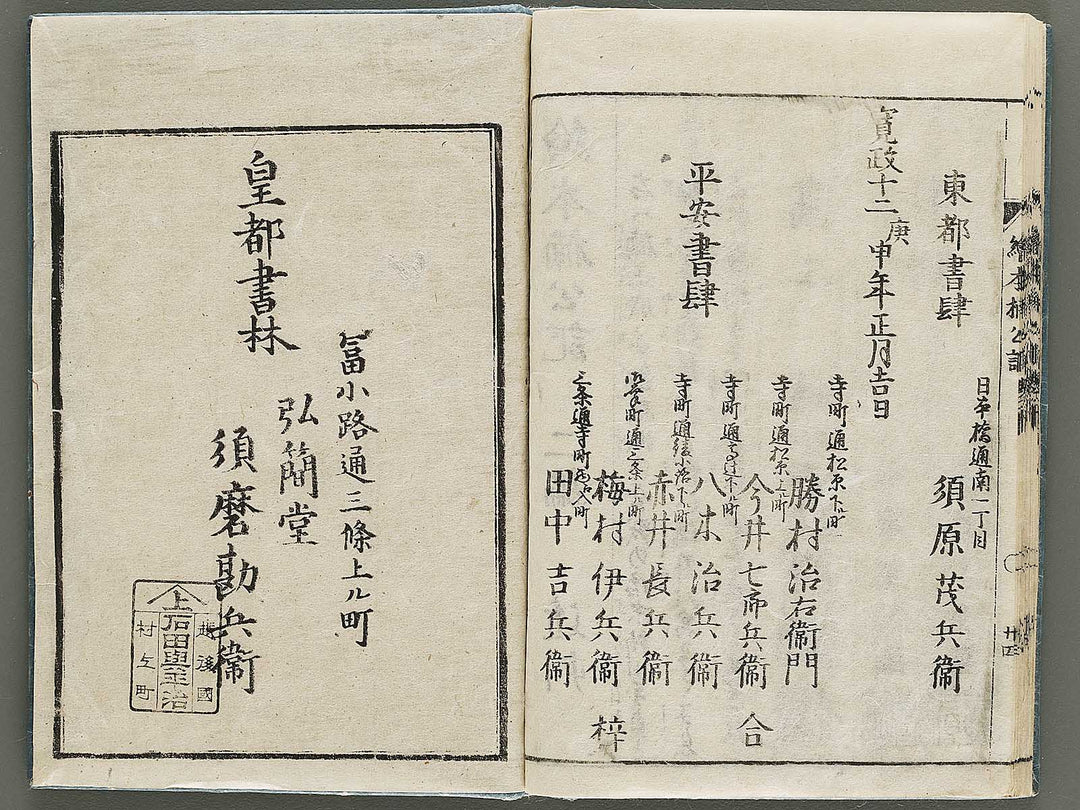 繪本楠公記
廿四
東都書肆
日本橋通南一丁目
須原茂兵衞
寛政十二庚申年正月吉日
平安書肆
寺町通松原下ル町
勝村治右衞門
寺町通松原上ル町
今井七郎兵衞
寺町通高辻下ル町
八木治兵衞
寺町通綾小路下ル町
赤井長兵衞
三条上ル町
梅村伊兵衞
三条通寺町西ヘ入町
田中吉兵衞
合梓
皇都書林
冨小路通三條上ル町
弘簡堂
須磨勘兵衞
越後國
上
石田與平治
村上町